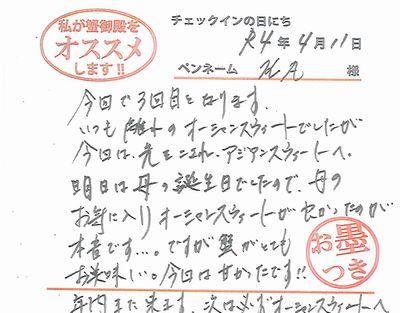 私が蟹御殿を
オススメ
します!!
チェックインの日にち
R4年4月11日
ペンネーム KA 様
今回で3回目となります。
いつも離れのオーシャンスウィートでしたが
今回は、先をこされ、アジアンスウィートへ。
明日は母の誕生日でしたので、母の
お気に入りオーシャンスウィートがよかったのが
本音です…。ですが蟹がとても
お美味しい。今回は甘かったです!!
お墨
つき
年内また来ます。次は必ずオーシャンスウィートへ